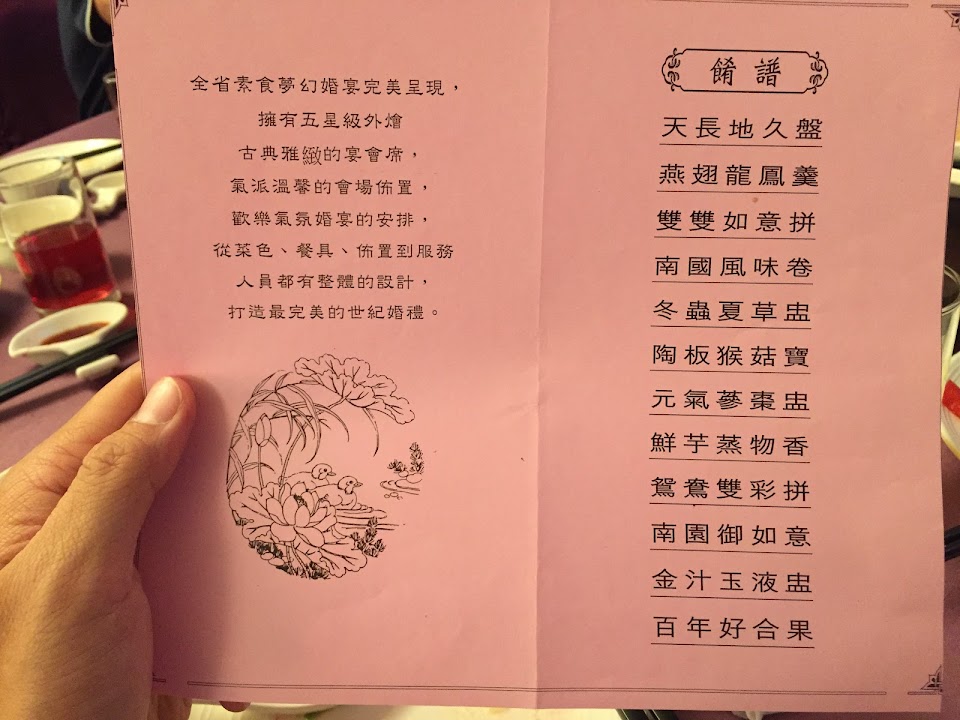 全省素食夢幻婚宴完美呈現，
擁有五星級外燴
古典雅緻的宴會席，
氣派溫馨的會場佈置，
歡樂氣氛婚宴的安排，
從菜色、餐具、佈置到服務
人員都有整體的設計，
打造最完美的世紀婚禮。
餚譜
天長地久盤
燕翅龍鳳羹
雙雙如意拼
南國風味卷
冬蟲夏草盅
陶板猴菇寶
元氣蔘棗盅
鮮芋蒸物香
鴛鴦雙彩拼
南園御如意
金汁玉液盅
百年好合果